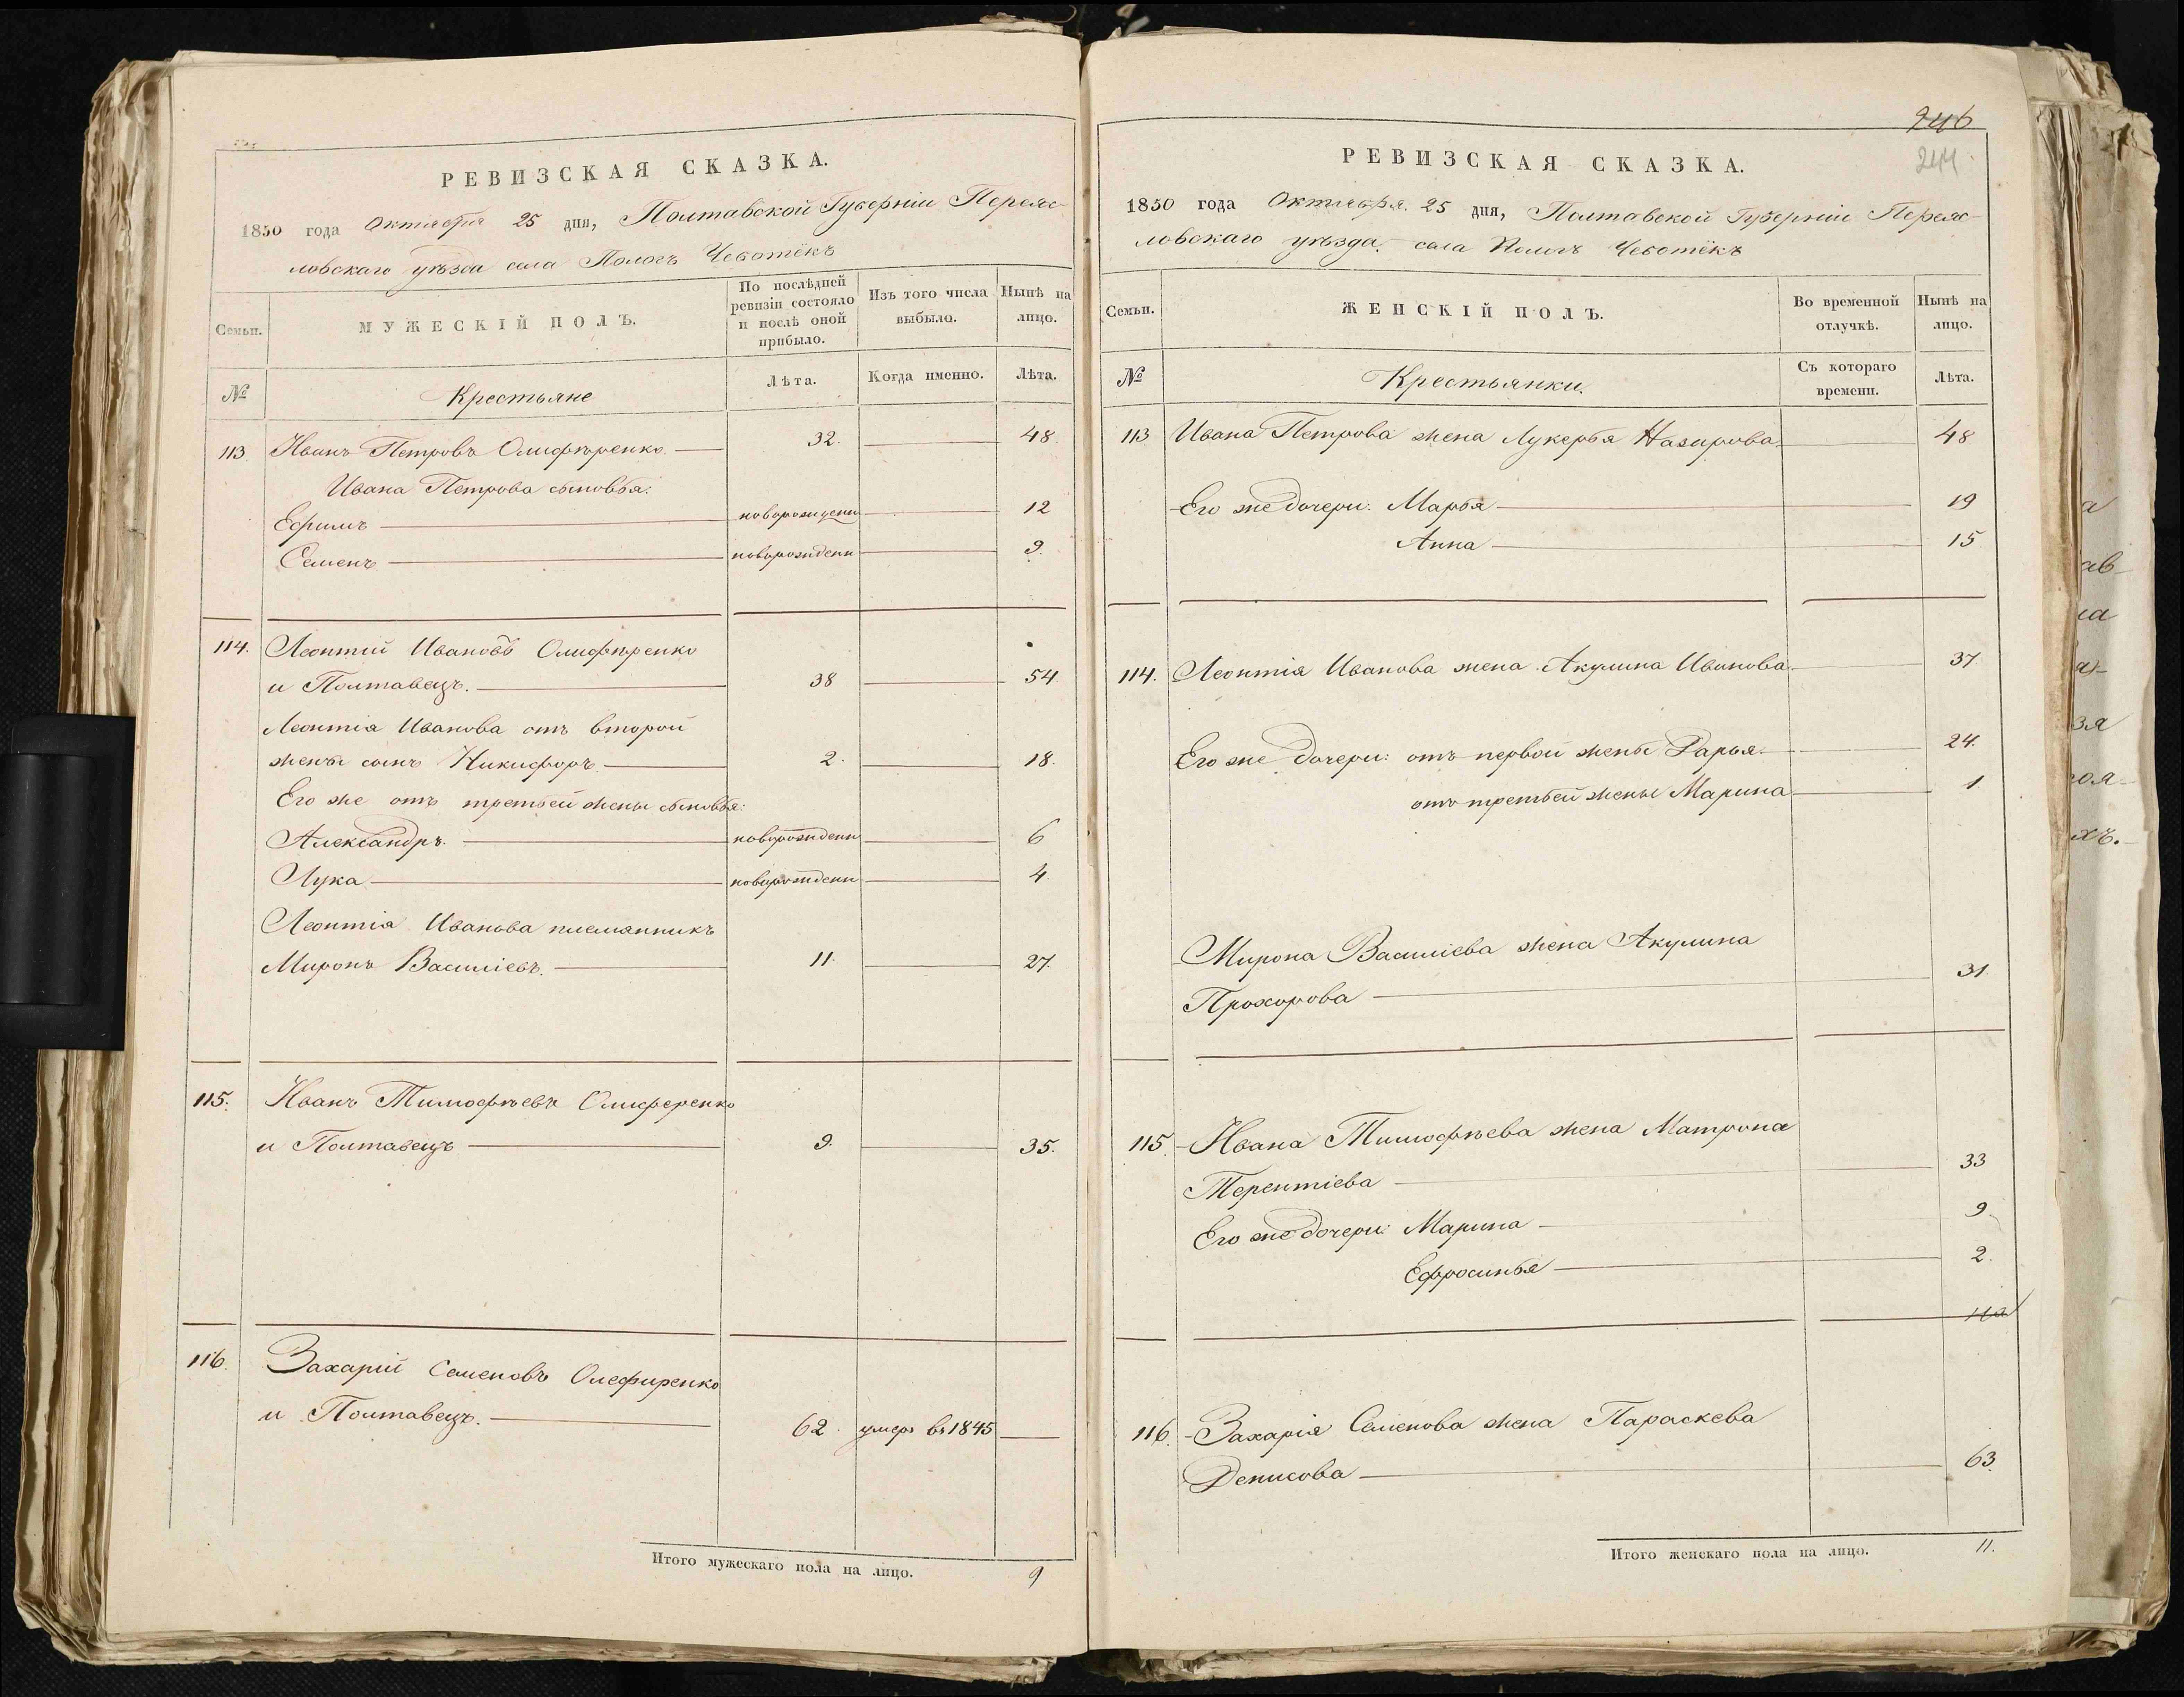 РЕВИЗСКАЯ СКАЗКА.
1850 года Октября 25 дня, Полтавской Губерніи Переяс-
ловскаго уѣзда села Пологъ Чеботёкъ
Семьи.
МУЖЕСКІЙ ПОЛЪ.
По послѣдней
ревизіи состояло
и послѣ оной
прибыло.
Изъ того числа
выбыло.
Нынѣ на
лицо.
№ Крестьяне Лѣта. Когда именно. Лѣта.
113. Иванъ Петровъ Олифѣренко 32. 48.
Ивана Петрова сыновья:
Ефимъ новорожденн 12
Семенъ новорожденн 9.
114. Леонтій Ивановъ Олифѣренко
и Полтавецъ. 38 54
Леонтія Иванова отъ второй
жены сынъ Никифоръ 2. 18.
Его же отъ третьей жены сыновья:
Александръ. новорожденн 6
Лука новорожденн 4
Леонтія Иванова племянникъ
Миронъ Василіевъ. 11. 27.
115. Иванъ Тимофѣевъ Олиференко
и Полтавецъ 9. 35.
116. Захарій Семеновъ Олефиренко
и Полтавецъ. 62. умеръ въ 1845
Итого мужескаго пола на лицо. 9
246
244
РЕВИЗСКАЯ СКАЗКА.
1850 года Октября 25 дня, Полтавской Губерніи Переяс-
ловскаго уѣзда. села Пологъ Чеботёкъ
Семьи.
ЖЕНСКІЙ ПОЛЪ.
Во временной
отлучкѣ.
Нынѣ на
лицо.
№ Крестьянки. Съ котораго
времени. Лѣта.
113 Ивана Петрова жена Лукерья Назарова 48
Его же дочери: Марья 19
Анна 15
114. Леонтія Иванова жена Акулина Иванова 37.
Его же дочери: отъ первой жены Дарья. 24.
отъ третьей жены Марина 1
Мирона Василіева жена Акулина
Прохорова 31.
115. Ивана Тимофѣева жена Матрона
Терентіева 33
Его же дочери: Марина 9.
Ефросинья 2.
116. Захарія Семенова жена Параскева
Денисова 63.
Итого женскаго пола на лицо. 11.